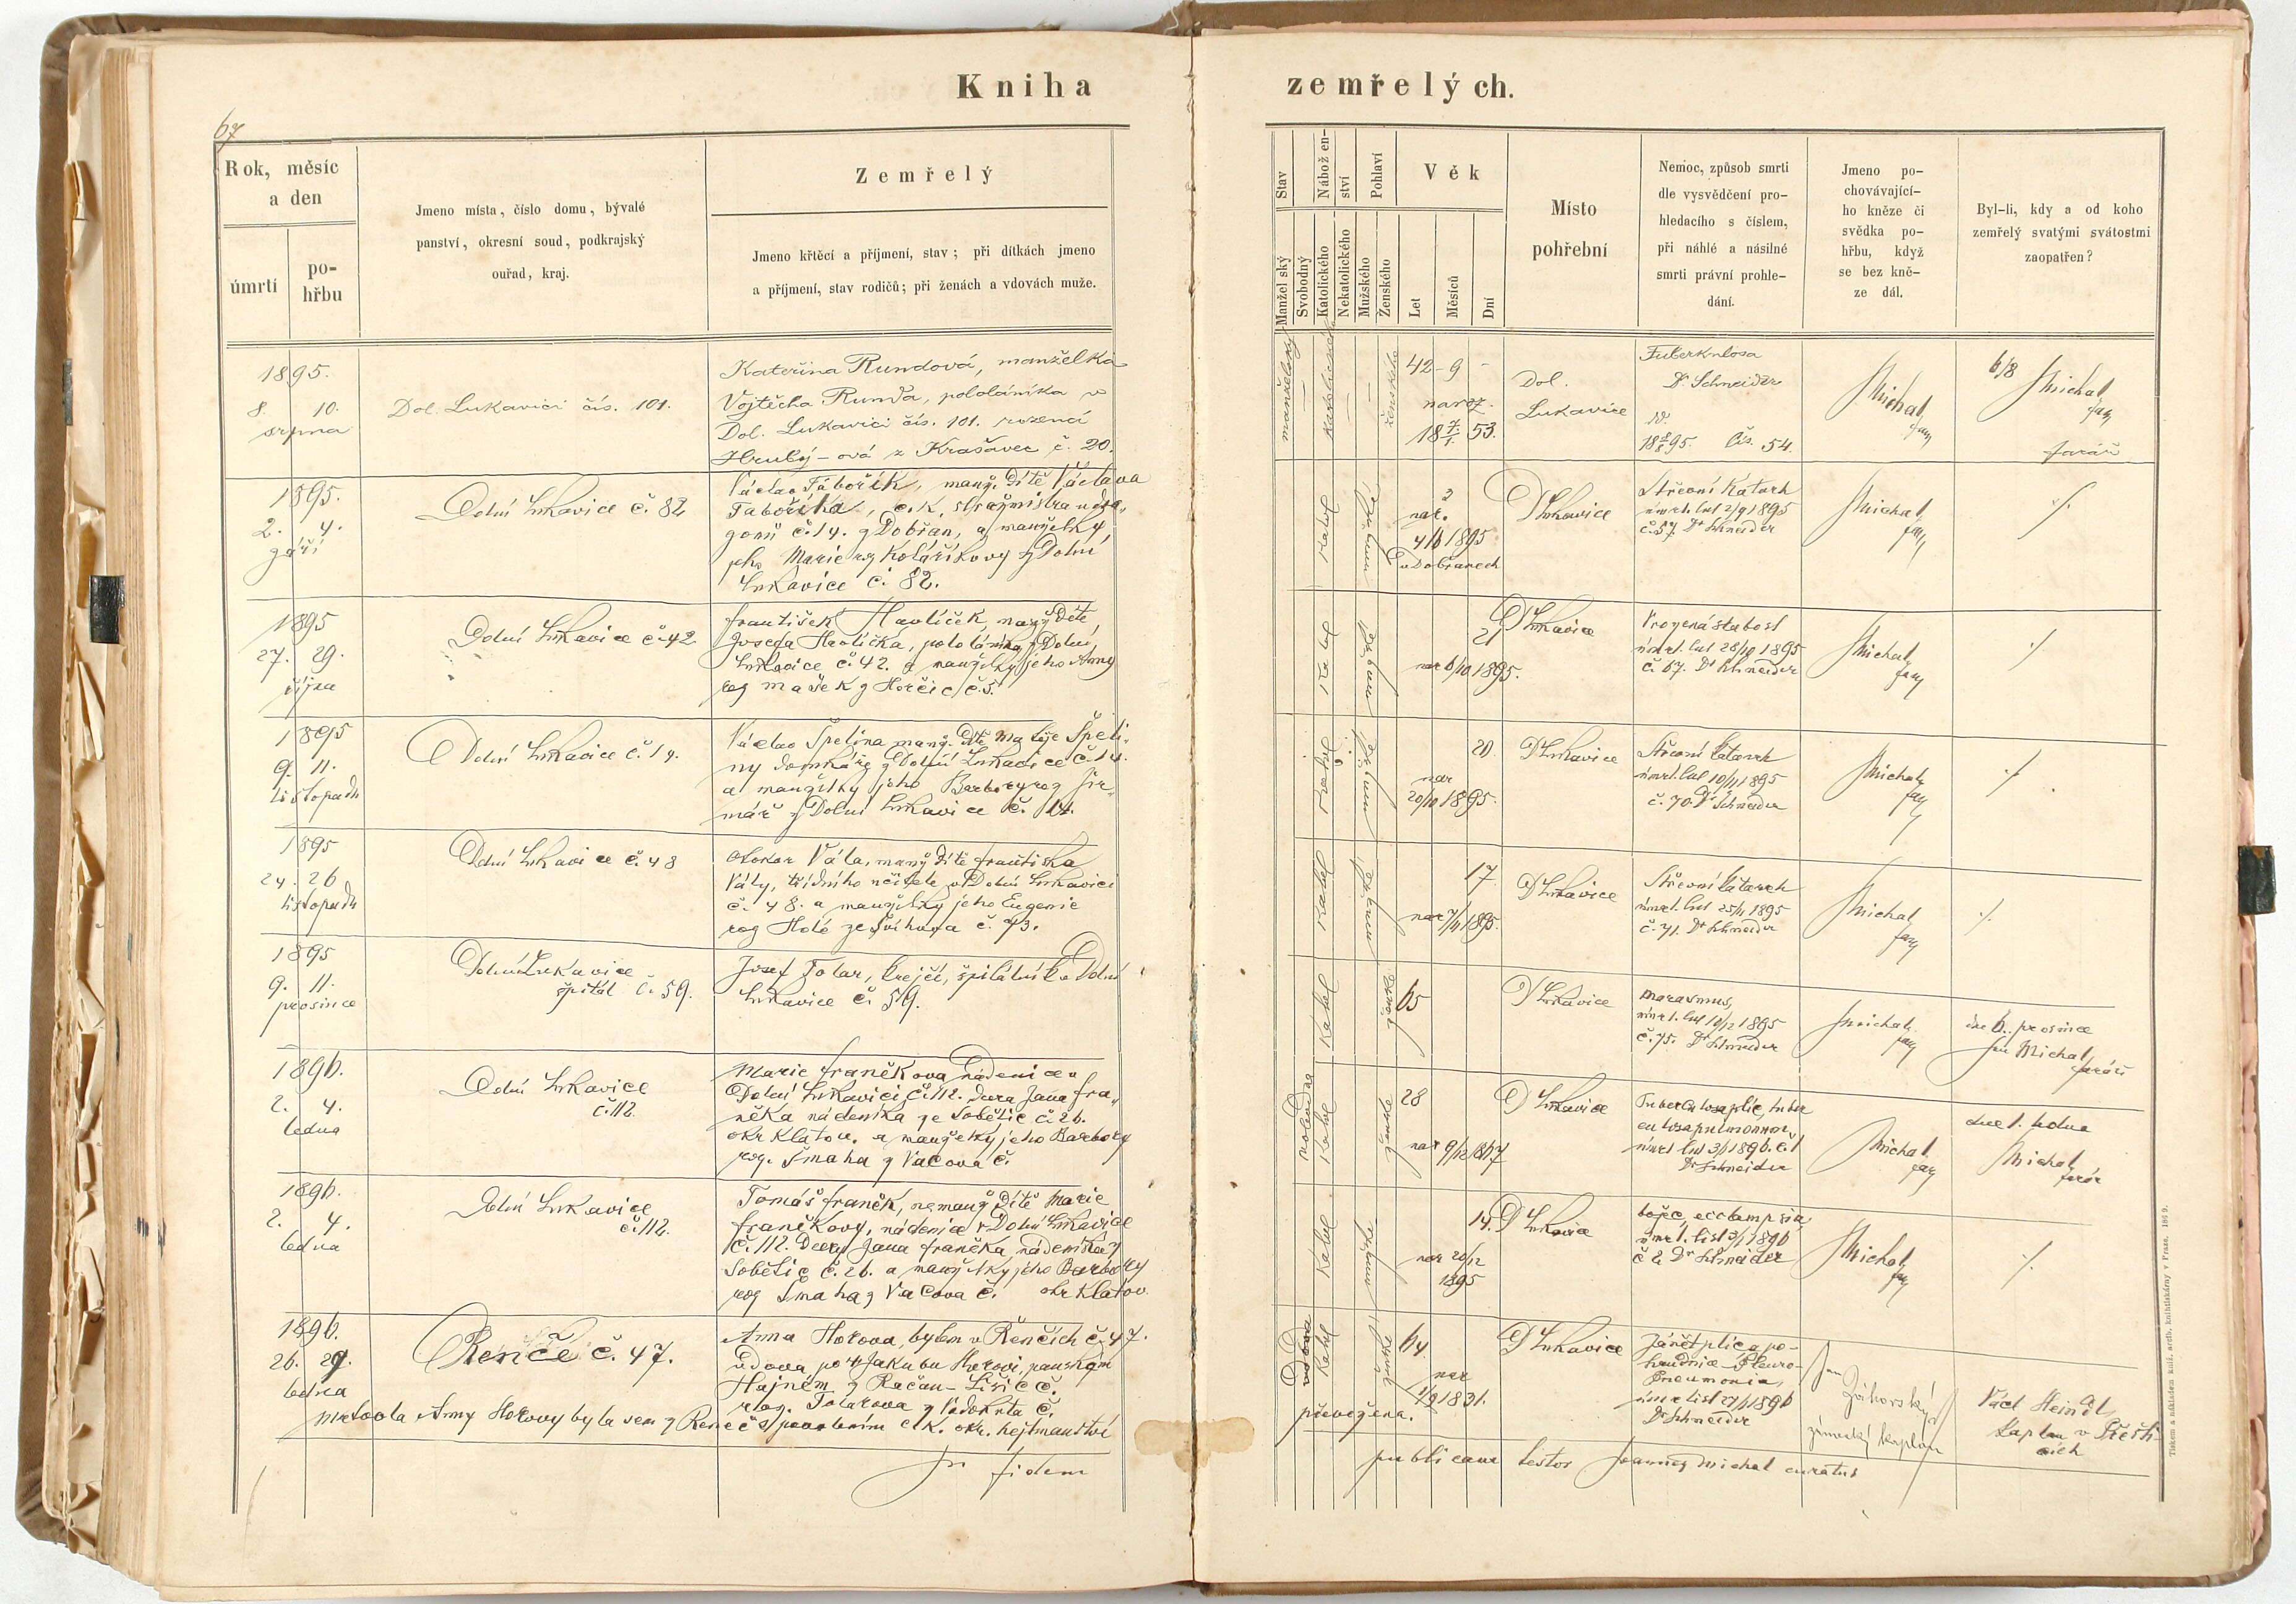 Kniha
67
Rok, měsíc
a den
úmrtí
po-
hřbu
Jmeno místa, číslo domu, bývalé
panství, okresní soud, podkrajský
ouřad, kraj.
Zemřelý
Jmeno křtěcí a příjmení, stav; při dítkách jmeno
a příjmení, stav rodičů; při ženách a vdovách muže.
1895.
8. 10.
srpna
Dol. Lukavici čís. 101.
Kateřina Rundová, manželka
Vojtěcha Runďa, pololáníka v
Dol. Lukavici čís. 101. rozená
Hrubý-ová z Krašovec č. 20.
1895.
2. 4.
září
Dolní Lukavice č. 82
Václav Tábořík, manž. dítě Václava
Taboříka, c. k. strážmistra u dra-
gonů č. 14. z Dobřan, a manželky
jeho Marie roz Kolaříkovy z Dolní
Lukavice č. 82.
1895
27. 29.
října
Dolní Lukavice č. 42
František Havlíček, manž dítě,
Josefa Havlíčka, pololáníka z Dolní
Lukavice č. 42. a manželky jeho Anny
roz Mašek z Horčic č. 5.
1895
9. 11.
listopadu
Dolní Lukavice č. 14.
Václav Špelina manž. dítě Matěje Špeli-
ny domkáře z Dolní Lukavice č. 14.
a manželky jeho Barbory roz
z Dolní Lukavice č. 14.
1895
24. 26
listopadu
Dolní Lukavice č. 48
Otokar Vála, manž dítě Františka
Vály, třídního učitele v Dolní Lukavici
č. 48. a manželky jeho Eugenie
roz Holé ze Švihova č. 73.
1895
9. 11.
prosince
Dolní Lukavice
špitál č. 59.
Josef Tolar, krejčí, špitálník v Dolní
Lukavice č. 59.
1896.
2. 4.
ledna
Dolní Lukavice
č. 112.
Marie Franěkova nádenice v
Dolní Lukavici č. 112. dcera Jana Fra-
něka nádeníka ze Sobětic č. 26.
okr Klatov. a manželky jeho Barbory
roz. Smaha z Vacova č.
1896.
2. 4.
ledna
Dolní Lukavice
č. 112.
Tomáš Franěk, nemanž dítě Marie
Franěkovy, nádenice v Dolní Lukavice
č. 112. Dcery Jana Franěka, nádeníka z
Sobětic č. 26. a manželky jeho Barbory
roz Smaha z Vacova č. okr Klatov.
1896.
26. 29.
ledna
Řenče č. 47.
Anna Horova, bytem v Řenčích č. 47.
vdova po Jakubu Horovi, panským
Hajném z Račan-Lišic č.
roz. Tolarova z č.
Mrtvola Anny Horovy byla sem z Řenče s povolením c. k. okr. hejtmanství
In fidem
zemřelých.
Stav
Manželský
Svobodný
Nábožen-
ství
Katolického
Nekatolického
Pohlaví
Mužského
Ženského
Věk
Let
Měsíců
Dní
Místo
pohřební
Nemoc, způsob smrti
dle vysvědčení pro-
hledacího s číslem,
při náhlé a násilné
smrti právní prohle-
dání.
Jmeno po-
chovávající-
ho kněze či
svědka po-
hřbu, když
se bez kně-
ze dál.
Byl-li, kdy a od koho
zemřelý svatými svátostmi
zaopatřen?
manželský
katolického
ženského
42 - 9 -
naroz.
18 7/1. 53.
Dol.
Lukavice
Tuberkulosa
Dr Schneider
18 8/8 95. čís. 54.
Michal
farář
6/8 Michal
farář
Katol
3
nar.
4/6 1895
v Dobřanech
D Lukavice
Střevní Katarh
úmrt. list 2/9 1895
č. 57. Dr Schneider
Michal
Katol
21
nar 6/10 1895.
D Lukavice
Vrozená slabost
úmrt. list 28/10 1895
č. 67. Dr Schneider
Michal
20.
nar
20/10 1895.
D Lukavice
Střevní katarrh
úmrt. list 10/11 1895
č. 70. Dr Schneider
Michal
Katol
17.
nar 7/11 1895.
D Lukavice
Střevní katarrh
úmrt. list 25/11 1895
č. 71. Dr Schneider
Michal
Katol
65
D Lukavice
Marasmus,
úmrt. list 10/12 1895
č. 75. Dr Schneider
Michal
dne 6. prosince
Jan Michal,
farář
svobodna
Katol
ženské
28
nar 9/12 1867
D Lukavice
Tuberculosa plic, tuber
culosa pulmonum,
úmrt list 3/1 1896. č. 1
Dr Schneider
Michal
dne 1. ledna
Michal
farář
Katol
14.
nar 20/12
1895
D Lukavice
božec, ecclampsia
úmrt. list 3/1 1896
č 2 Dr Schneider
Michal
vdova
Katol
ženské
64
nar
1831.
převežena.
D Lukavice
Zánět plic a po-
hrudnice - Pleuro-
Pneumonia,
úmrt list 27/1 1896
Dr Schneider
Jan
Záhorský
zámecký kaplan
Václ Heindl
kaplan v Přešti-
cích
publicam testor Joannes Michal curatus
Tiskem a nákladem kníž. arcib. knihtiskárny v Praze. 1869.